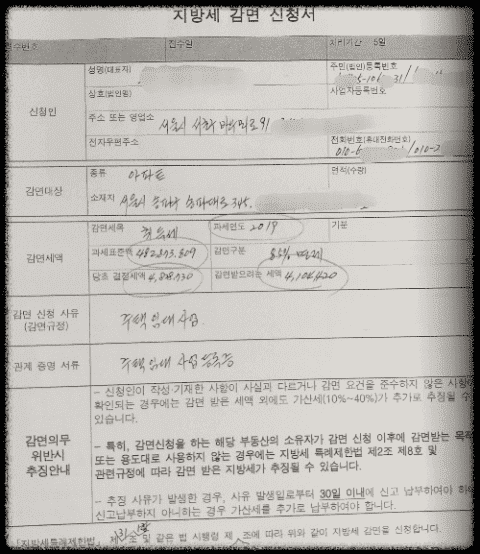 지방세 감면 신청서
접수일 처리기간 5일
신청인
성명(대표자) 주민(법인)등록번호
상호(법인명) 사업자등록번호
주소 또는 영업소 서울시
전자우편주소 전화번호(휴대전화번호)
감면대상
종류 아파트 면적(수량)
소재지 서울시 송파구 송파대로 345,
감면세액
감면세목 취득세 과세연도 2019 기분
과세표준액 482,873,809 감면구분 85% 면제
당초 결정세액 4,828,730 감면받으려는 세액 4,104,420
감면 신청 사유
(감면규정)
주택임대사업
관계 증명 서류 주택임대사업등록증
감면의무
위반시
추징안내
- 신청인이 작성·기재한 사항이 사실과 다르거나 감면 요건을 준수하지 않은 사항이
확인되는 경우에는 감면 받은 세액 외에도 가산세(10%~40%)가 추가로 추징될 수
있습니다.
- 특히, 감면신청을 하는 해당 부동산의 소유자가 감면 신청 이후에 감면받는 목적
또는 용도대로 사용하지 않는 경우에는 지방세 특례제한법 제2조 제8호 및
관련규정에 따라 감면 받은 지방세가 추징될 수 있습니다.
- 추징 사유가 발생한 경우, 사유 발생일로부터 30일 이내에 신고 납부하여야 하며
신고납부하지 아니하는 경우 가산세를 추가로 납부하여야 합니다.
「지방세특례제한법」 제 조 및 같은 법 시행령 제 조에 따라 위와 같이 지방세 감면을 신청합니다.